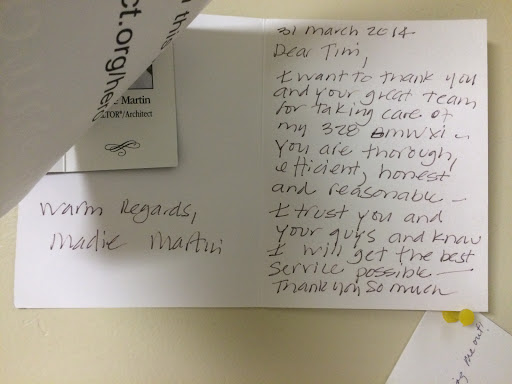 this
ct.org/hel
Martin
TOR®/Architect
Warm Regards,
Madie Martin
31 March 2014
Dear Tim,
I want to thank you
and your great team
for taking care of
my 328 BMW xi –
You are thorough,
efficient, honest
and reasonable –
I trust you and
your guys and know
I will get the best
service possible –
Thank you so much
me out!